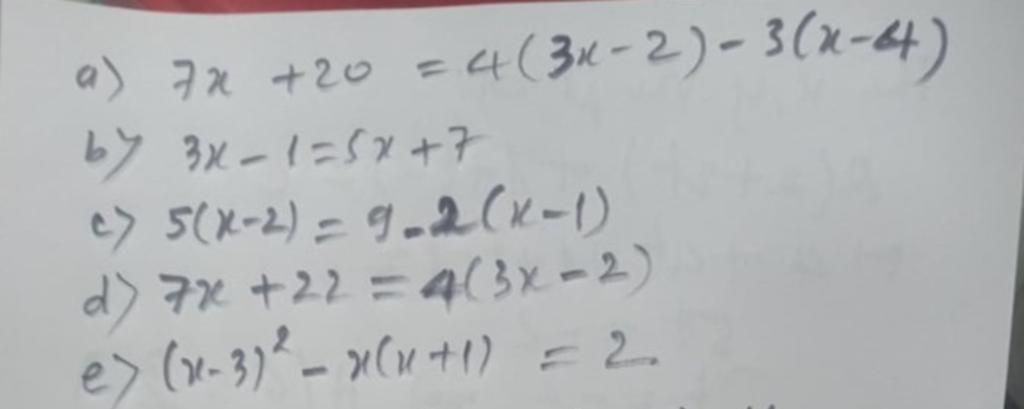 a) 7x + 20 = 4(3x - 2) - 3(x - 4)
b) 3x - 1 = 5x + 7
c) 5(x - 2) = 9 - 2(x - 1)
d) 7x + 22 = 4(3x - 2)
e) (x - 3)² - x(x + 1) = 2